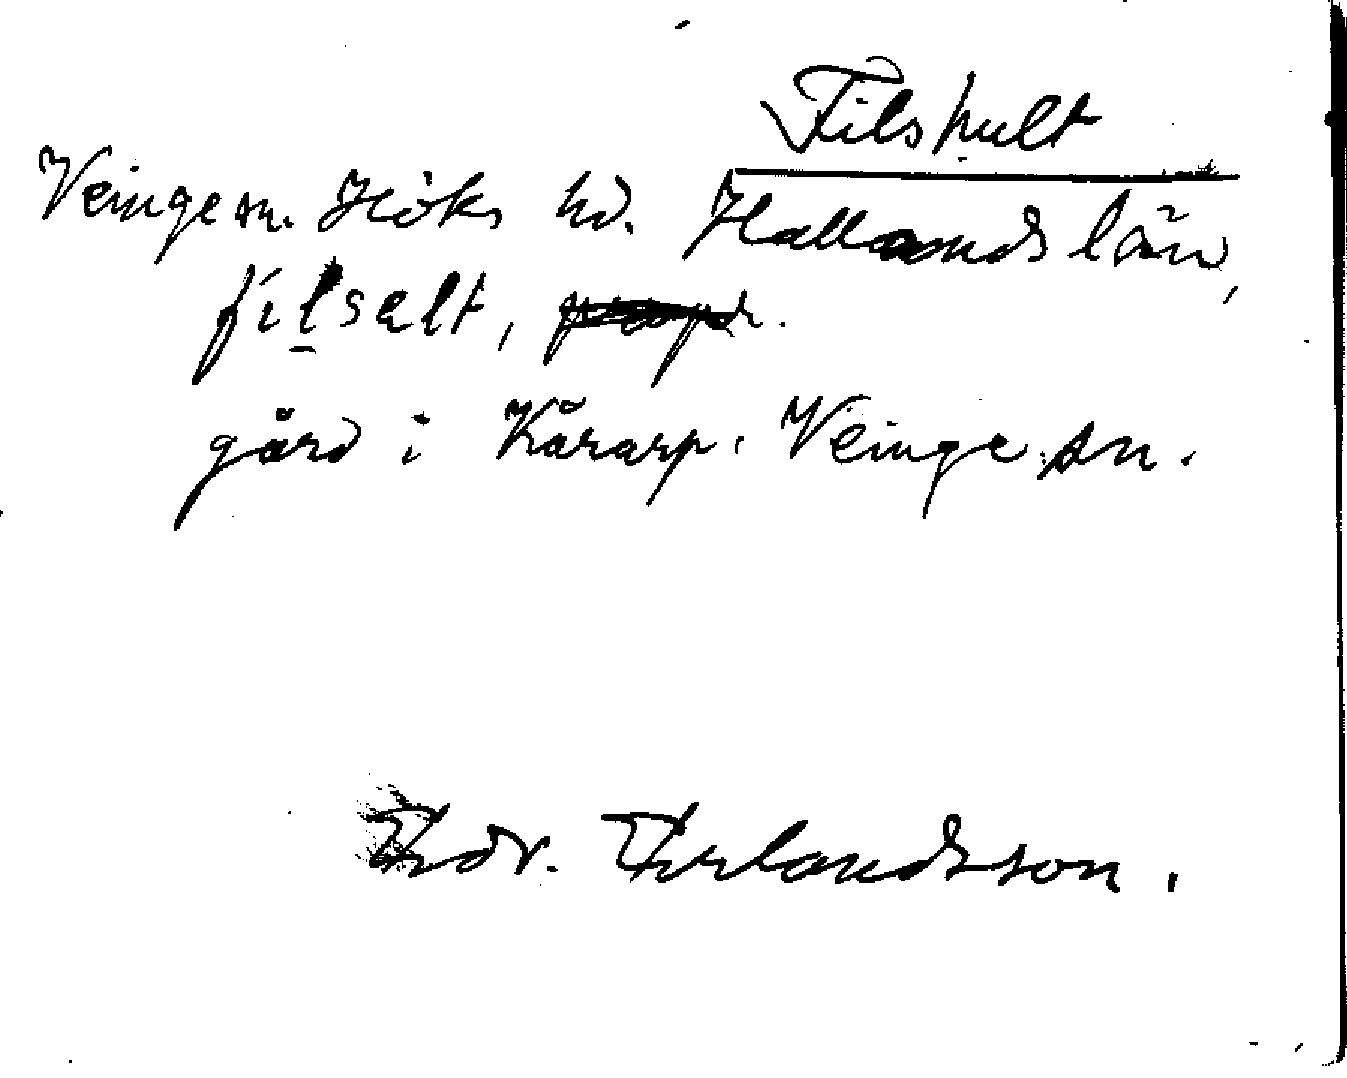 Filshult
Veinge sn. Höks hd. Hallands län,
filselt,
gård i Kärarp. Veinge sn.
Edv. Erlandsson.